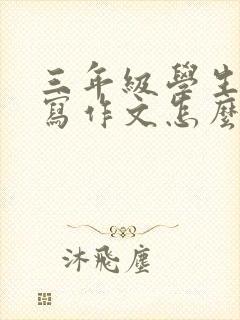 三年級學生
寫作文怎麼
沐飛塵